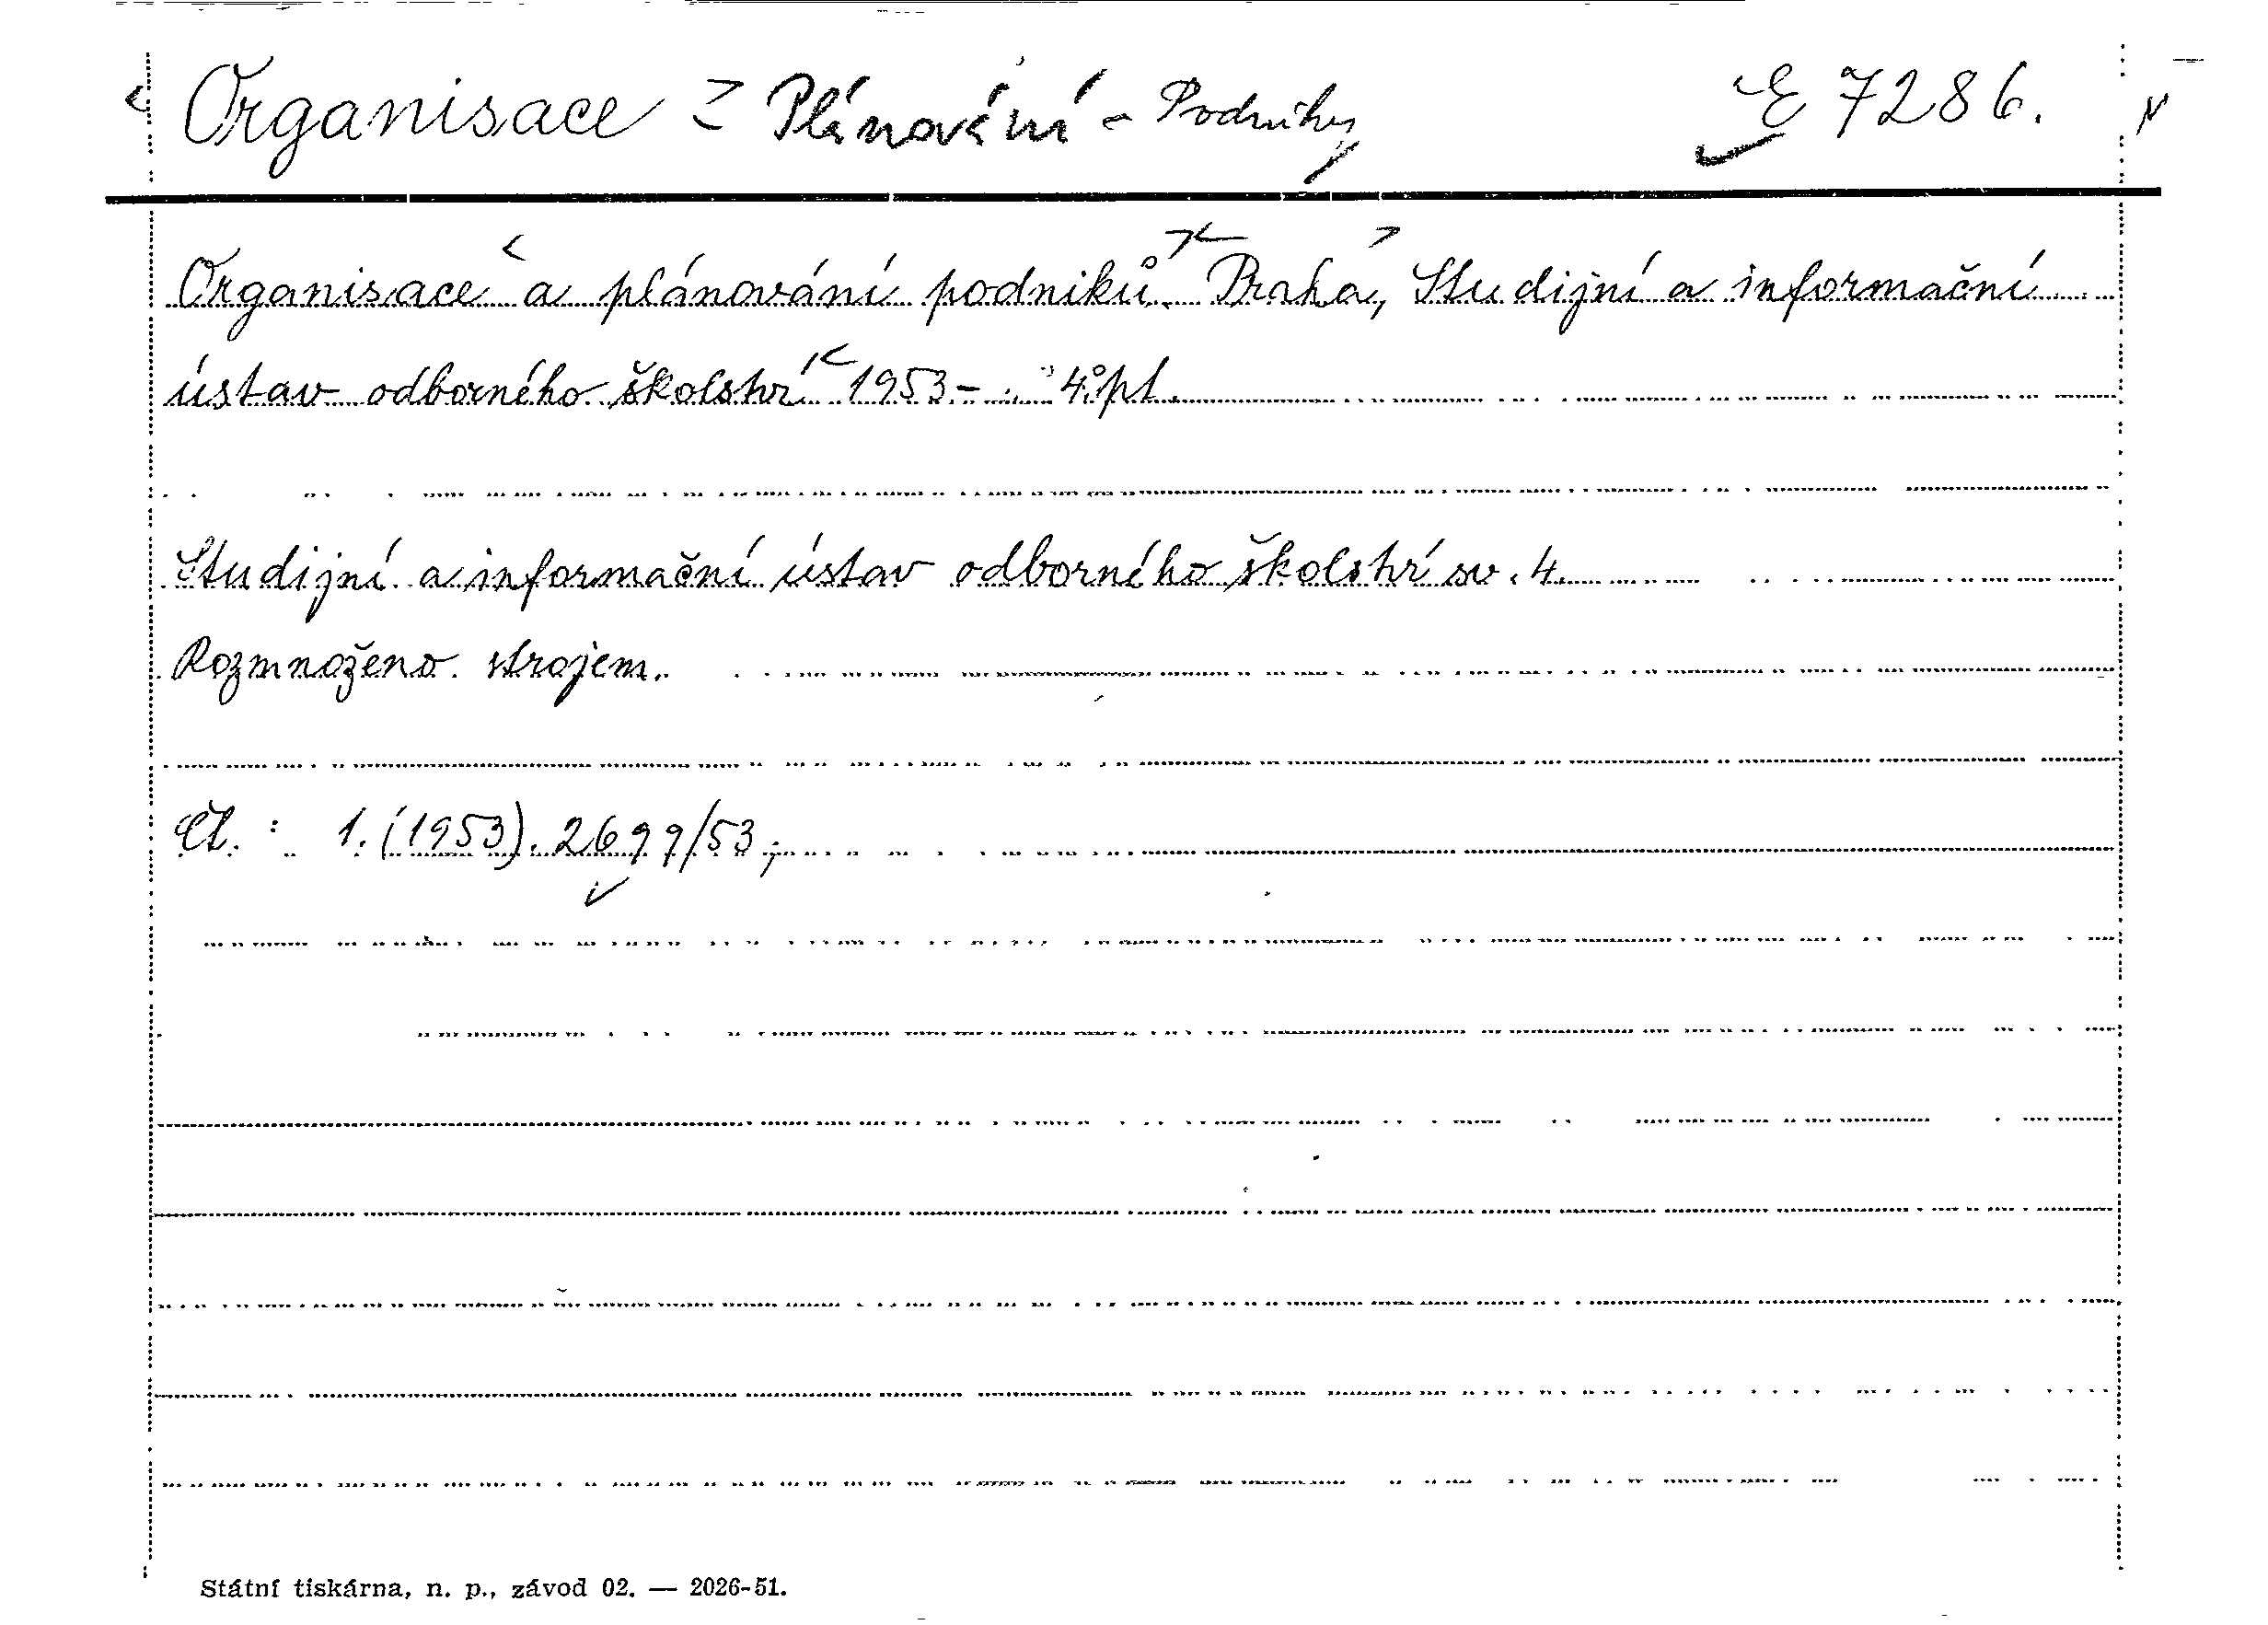 Organisace - Plánování - Podniky E 7286.
Organisace a plánování podniků. Praha, Studijní a informační
ústav odborného školství 1953- 4° pl.
Studijní a informační ústav odborného školství sv. 4.
Rozmnoženo strojem.
Čt. : 1. (1953). 2699/53;
Státní tiskárna, n. p., závod 02. — 2026-51.